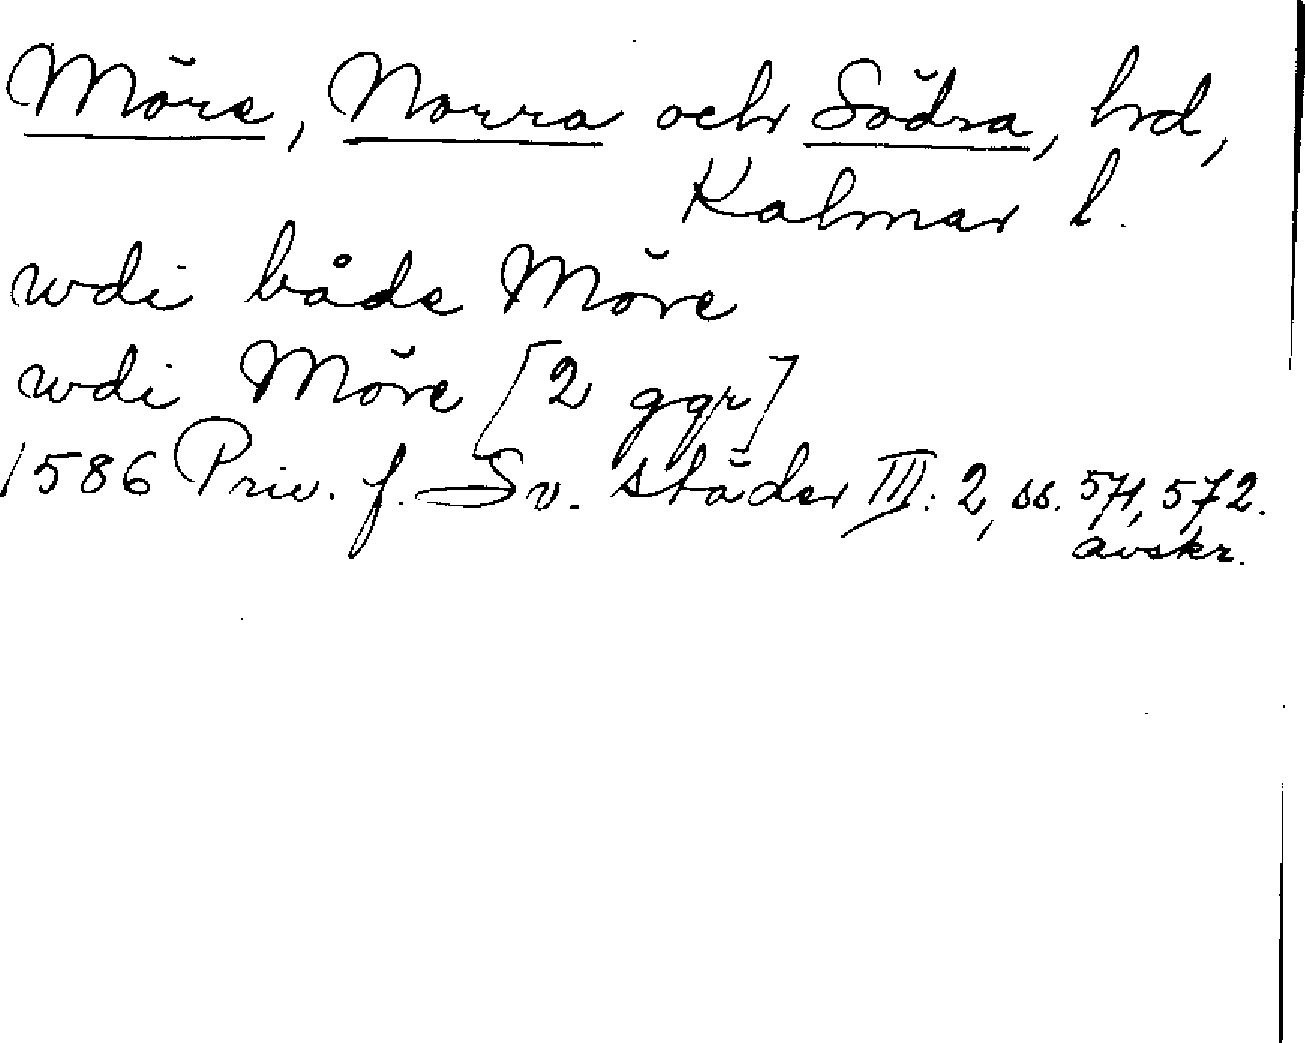 Möre, Norra och Södra, hd,
Kalmar l.
wdi både Möre
wdi Möre [2 ggr]
1586 Priv. f. Sv. städer III: 2, ss. 571, 572.
avskr.